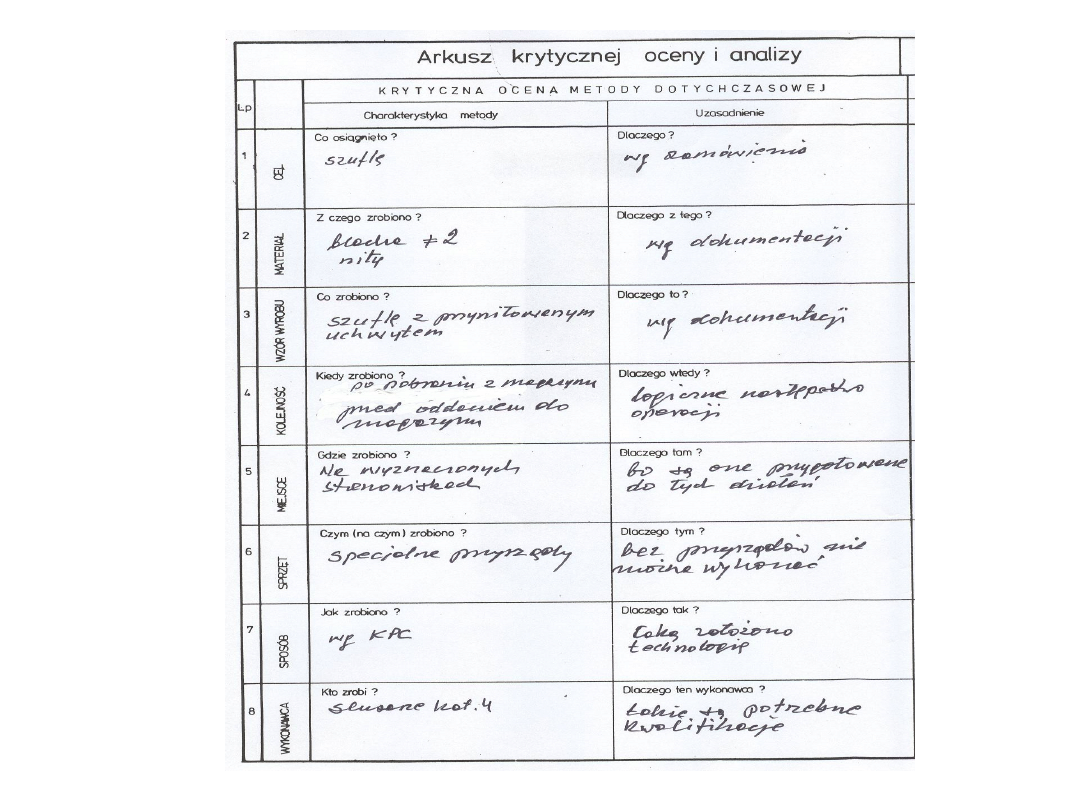 Arkusz krytycznej oceny i analizy
KRYTYCZNA OCENA METODY DOTYCHCZASOWEJ
Lp
Charakterystyka metody
Uzasadnienie
1
CEL
Co osiągnięto ?
szuflę
Dlaczego ?
wg zamówienia
2
MATERIAŁ
Z czego zrobiono ?
blacha ≠ 2
nity
Dlaczego z tego ?
wg dokumentacji
3
WZÓR WYROBU
Co zrobiono ?
szuflę z przynitowanym
uchwytem
Dlaczego to ?
wg dokumentacji
4
KOLEJNOŚĆ
Kiedy zrobiono ?
po pobraniu z magazynu
przed oddaniem do
magazynu
Dlaczego wtedy ?
logiczne następstwo
operacji
5
MIEJSCE
Gdzie zrobiono ?
Na wyznaczonych
stanowiskach
Dlaczego tam ?
bo są one przygotowane
do tych działań
6
SPRZĘT
Czym (na czym) zrobiono ?
specjalne przyrządy
Dlaczego tym ?
bez przyrządów nie
można wykonać
7
SPOSÓB
Jak zrobiono ?
wg KPC
Dlaczego tak ?
taką założono
technologię
8
WYKONAWCA
Kto zrobi ?
ślusarz kat. 4
Dlaczego ten wykonawca ?
takie są potrzebne
kwalifikacje